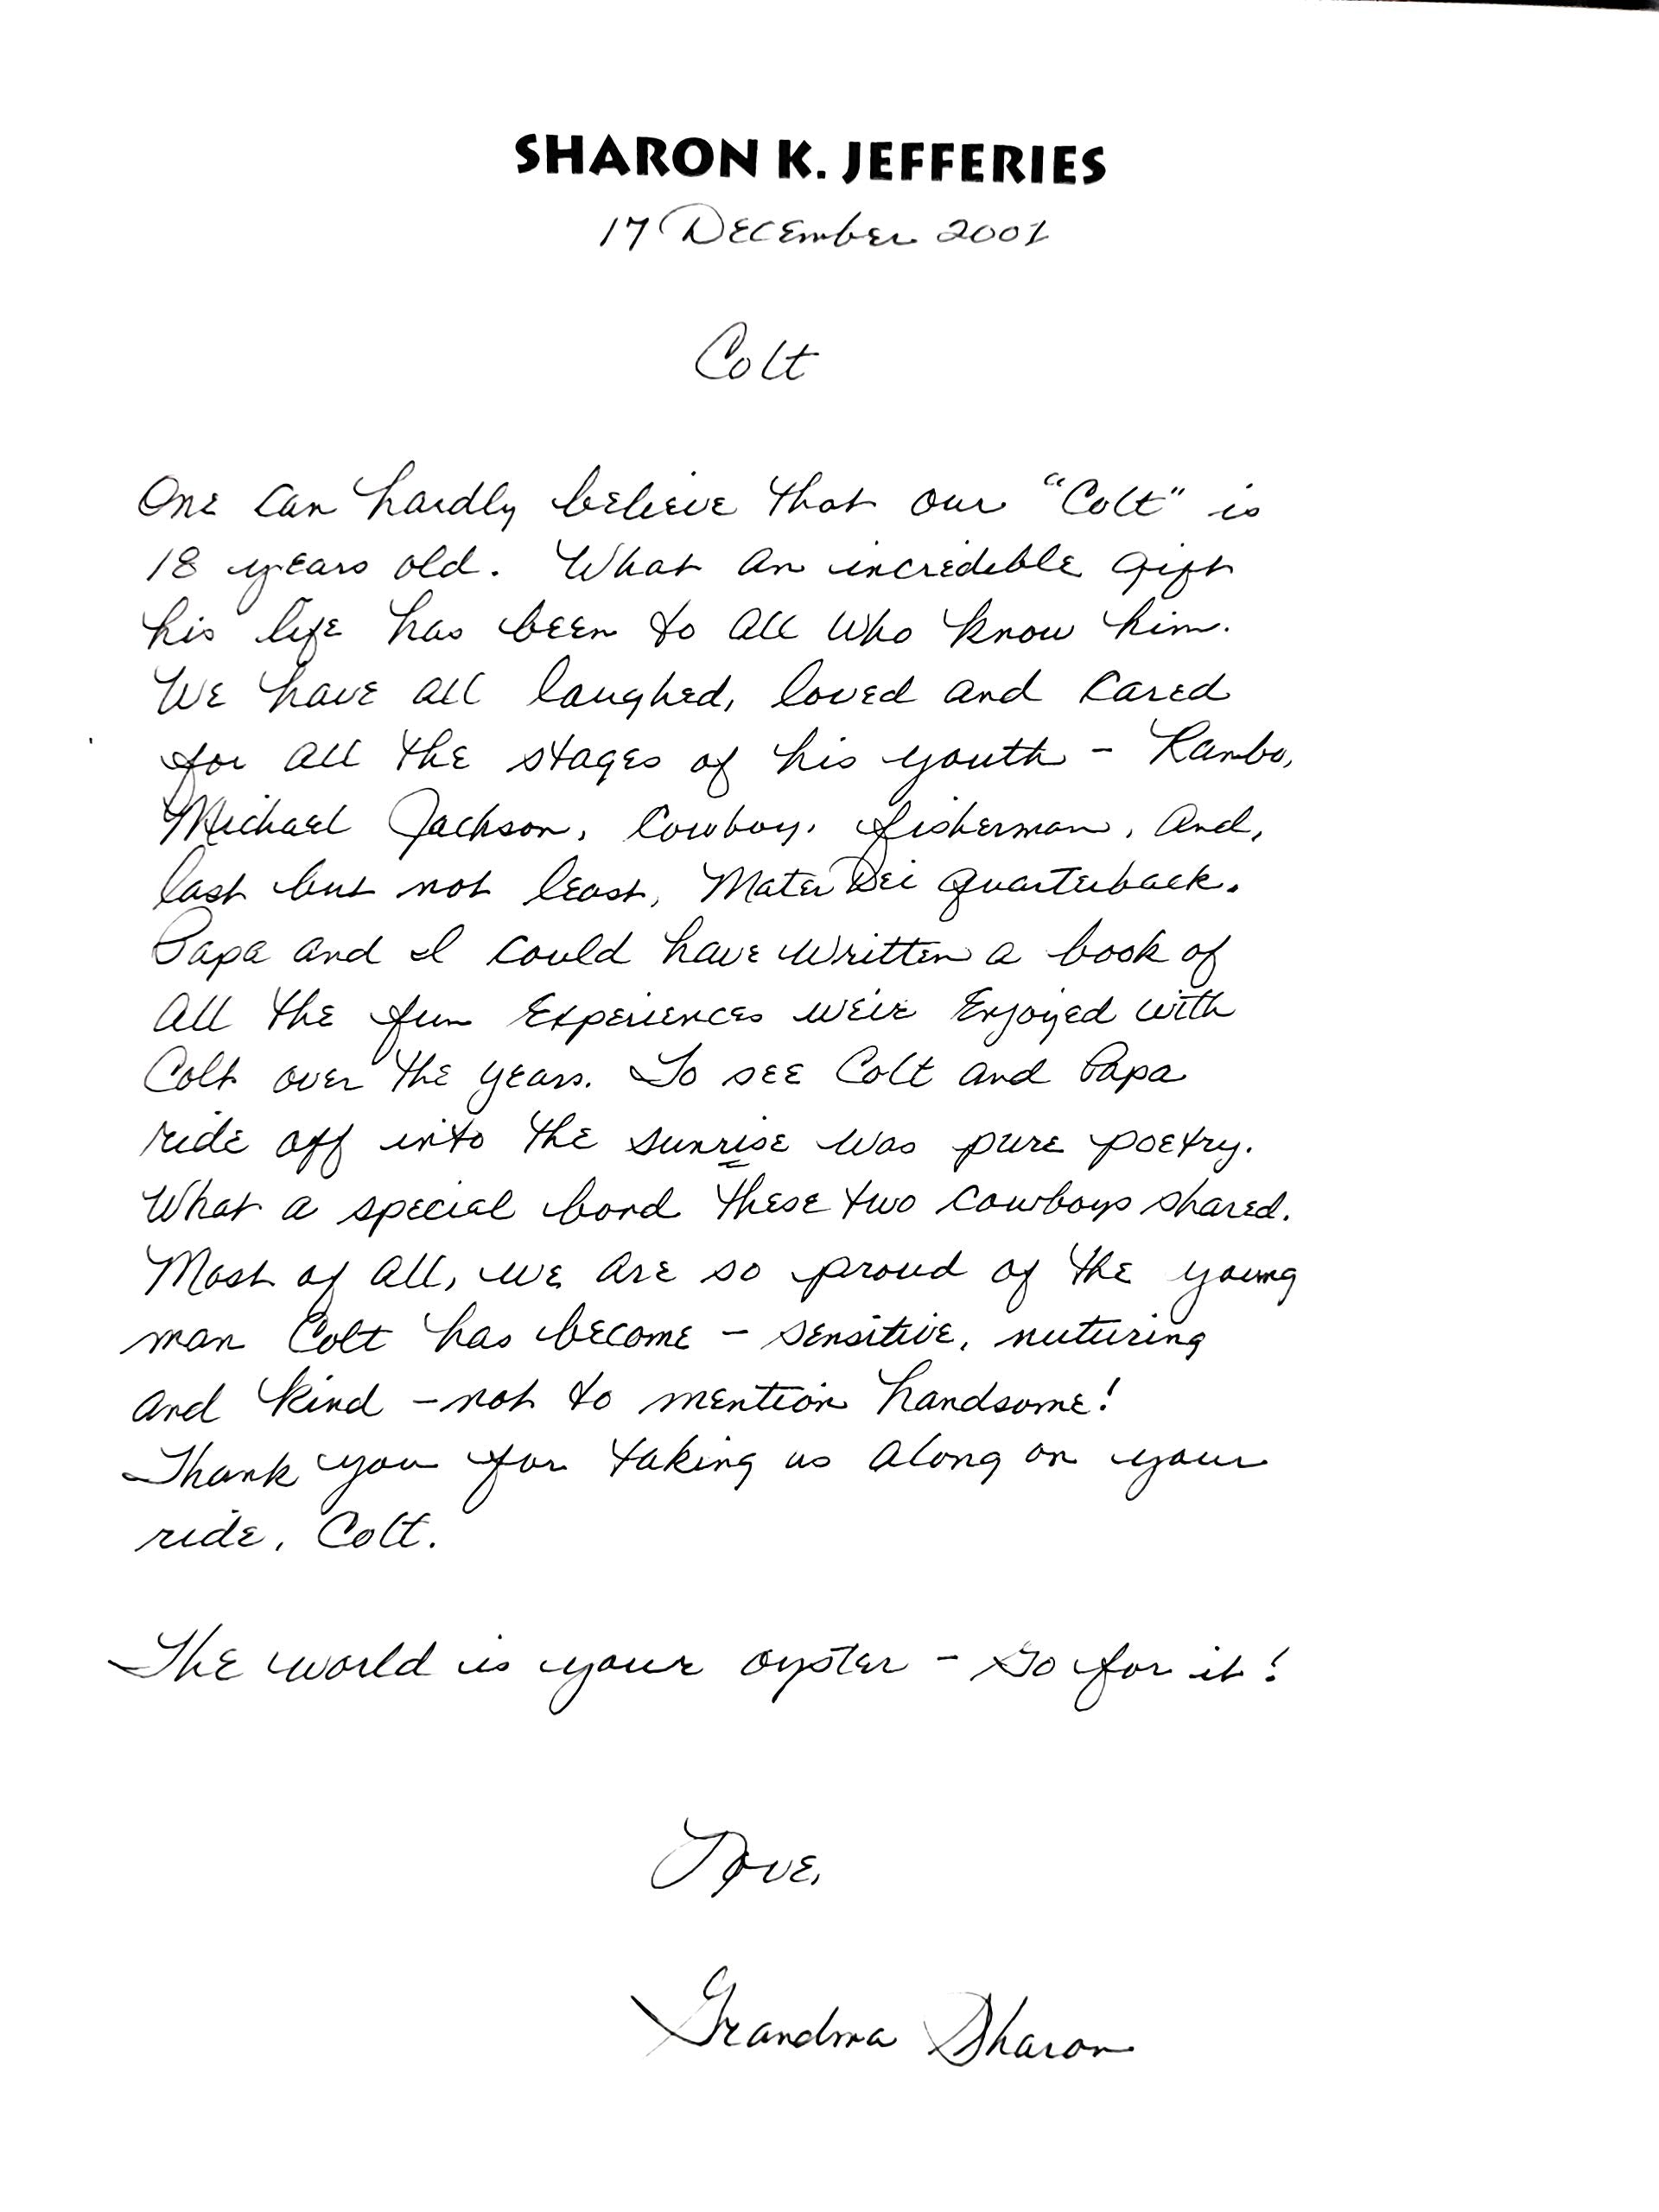 SHARON K. JEFFERIES
17 December 2001
Colt
One can hardly believe that our "Colt" is
18 years old. What an incredible gift
his life has been to all who know him.
We have all laughed, loved and cared
for all the stages of his youth - Rambo,
Michael Jackson, Cowboy, fisherman, and,
last but not least, Mater Dei quarterback.
Papa and I could have written a book of
all the fun experiences we've enjoyed with
Colt over the years. To see Colt and Papa
ride off into the sunrise was pure poetry.
What a special bond these two cowboys shared.
Most of all, we are so proud of the young
man Colt has become - sensitive, nuturing
and kind - not to mention handsome!
Thank you for taking us along on your
ride, Colt.
The world is your oyster - Go for it!
Love,
Grandma Sharon